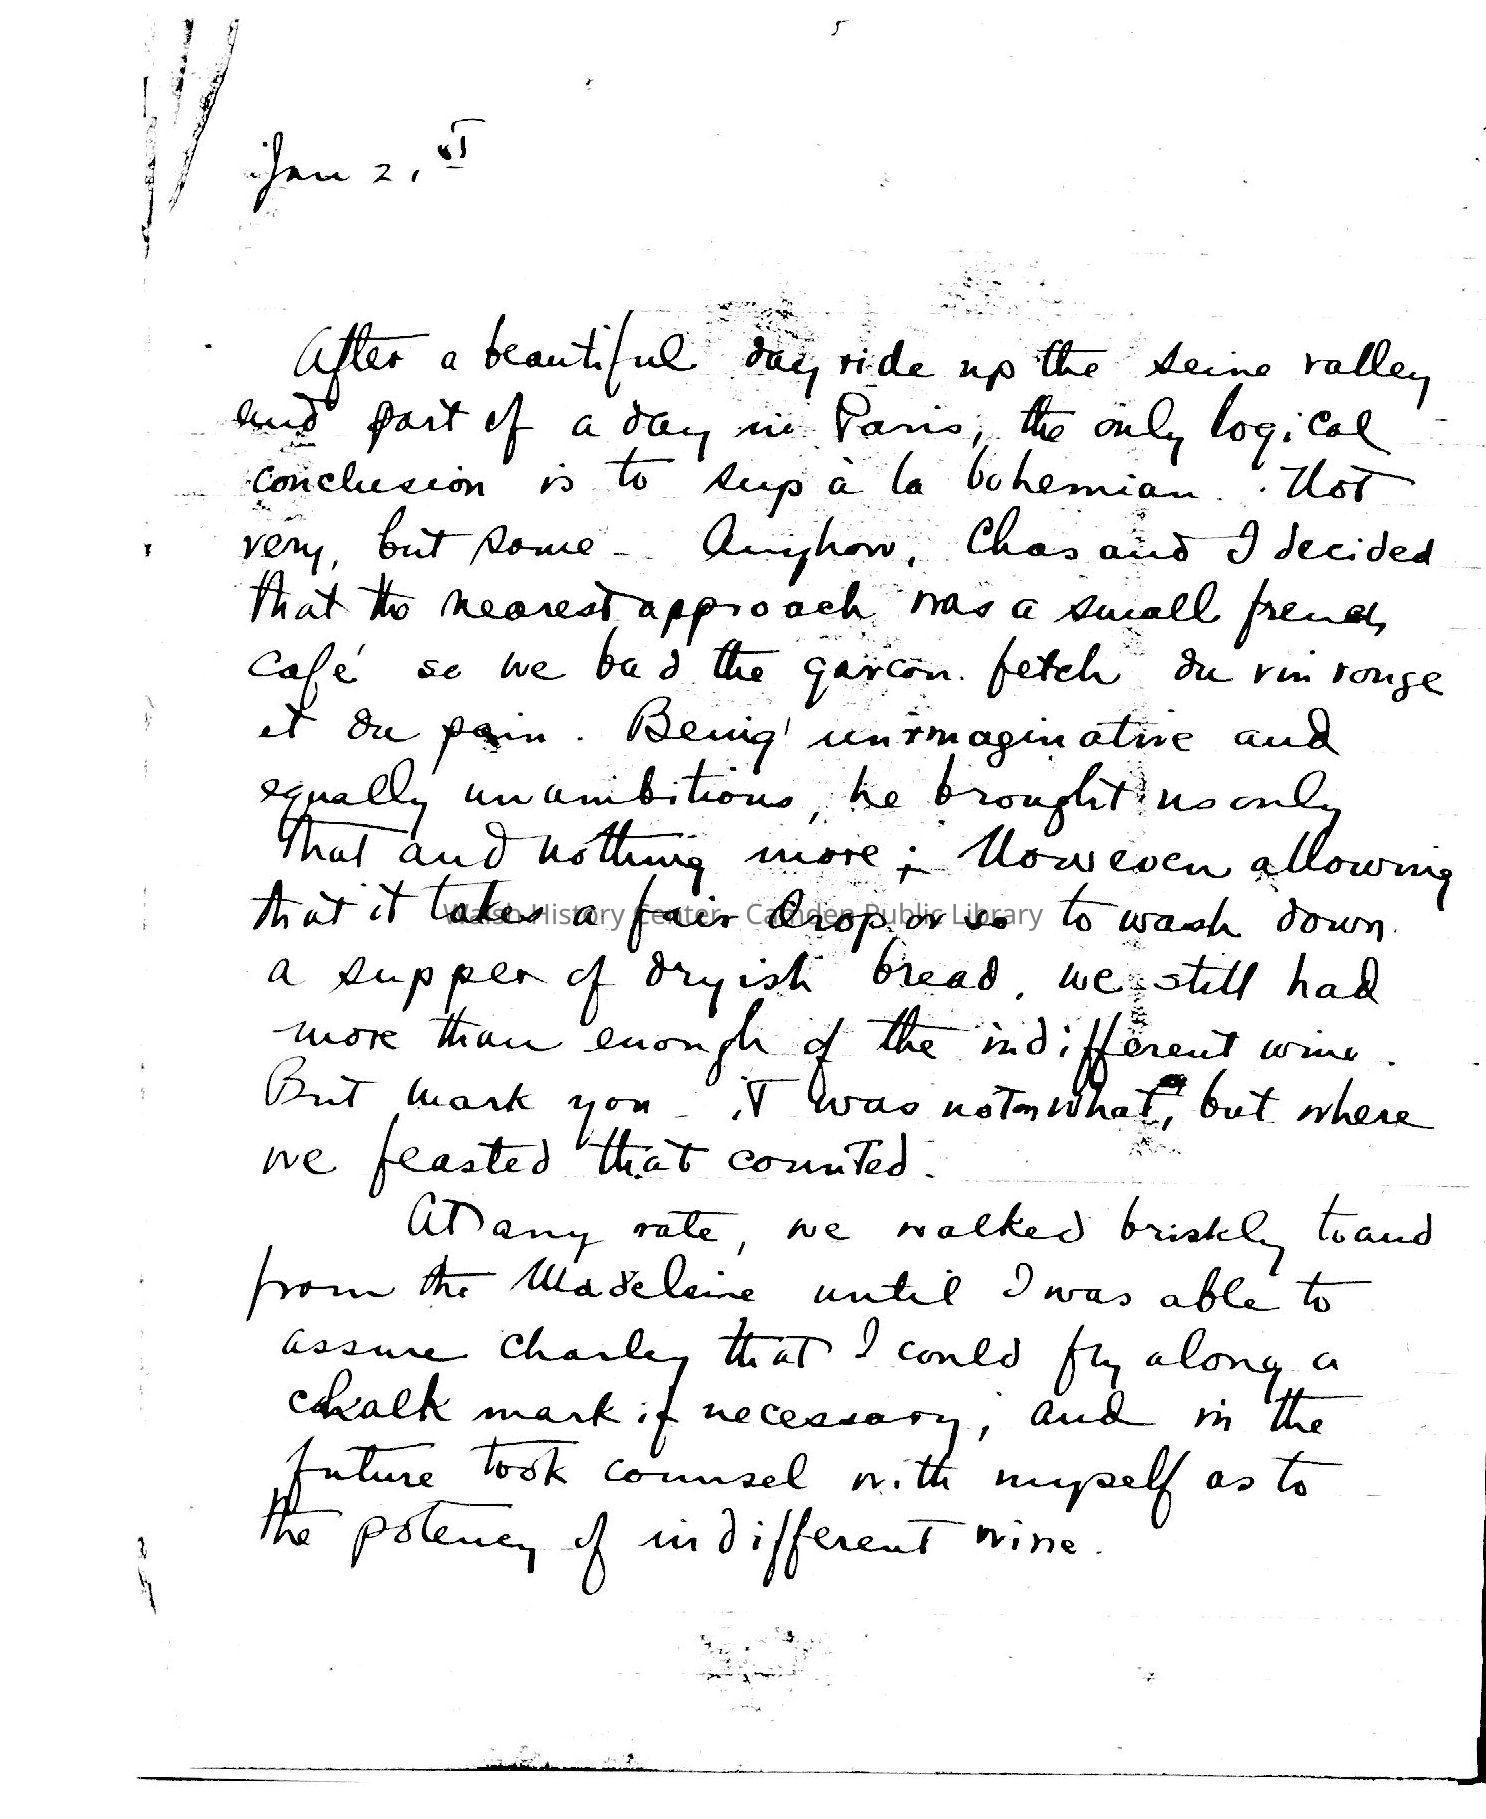 5
Jan 21st
After a beautiful day ride up the seine valley
and part of a day in Paris, the only logical
conclusion is to sup à la bohemian. Not
very, but some - Anyhow, Chas and I decided
that the nearest approach was a small french
café so we bad the garcon fetch du vin rouge
et du pain. Being unimaginative and
equally unambitious, he brought us only
that and nothing more; However allowing
that it takes a fair drop or so to wash down
a supper of dryish bread, we still had
more than enough of the indifferent wine.
But mark you - it was not on what, but where
we feasted that counted.
At any rate, we walked briskly to and
from the Madeleine until I was able to
assure Charley that I could fly along a
chalk mark if necessary; and in the
future took counsel with myself as to
the potency of indifferent wine.
Walsh History Center - Camden Public Library